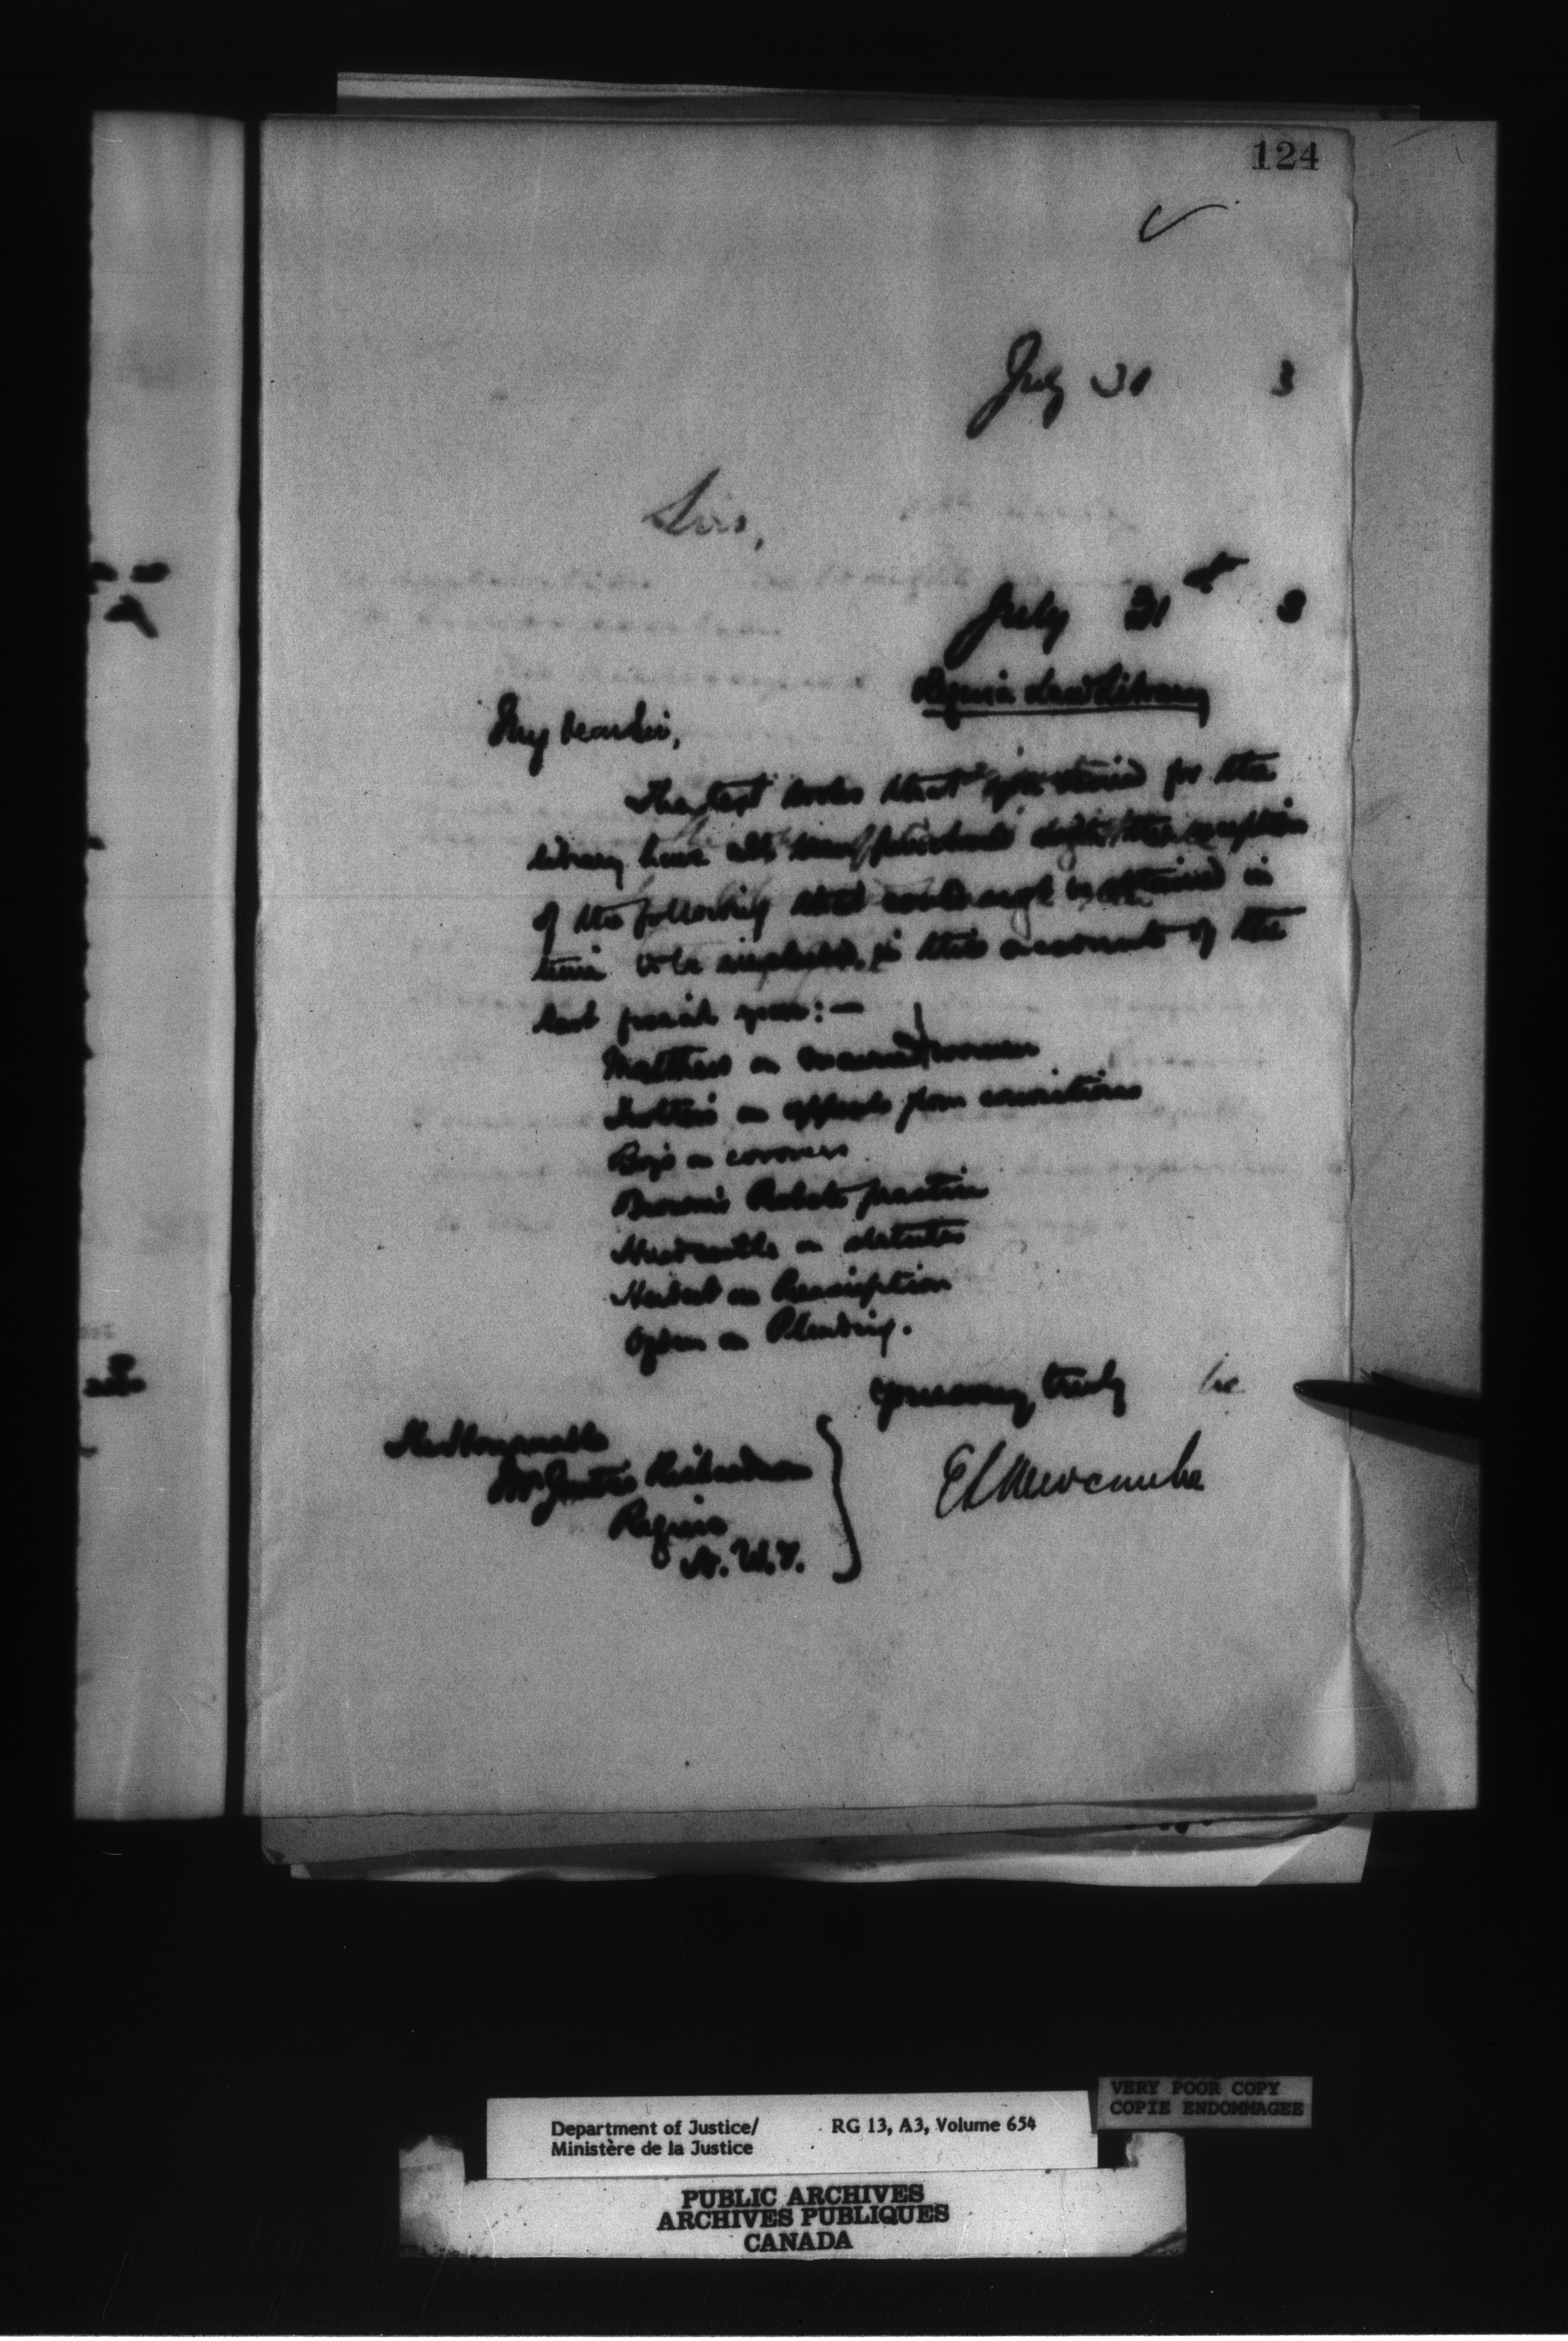 124
July 31 3
Sir,
July 31st 3
Regina Law Library
My dear Sir,
The text books that you desired for the
library have all been purchased with the exception
of the following that could not be obtained in
time to be included in the accounts of the
last fiscal year:—
Matthews on married women
on appeals from convictions
Boys on coroners
Brown's Probate practice
Hardcastle on statutes
Herbert on Prescription
Ogden on Pleading.
Yours very truly
E L Newcombe
The Honourable
Mr Justice Richardson
Regina
N.W.T.
Department of Justice/ RG 13, A3, Volume 654
Ministère de la Justice
VERY POOR COPY
COPIE ENDOMMAGEE
PUBLIC ARCHIVES
ARCHIVES PUBLIQUES
CANADA